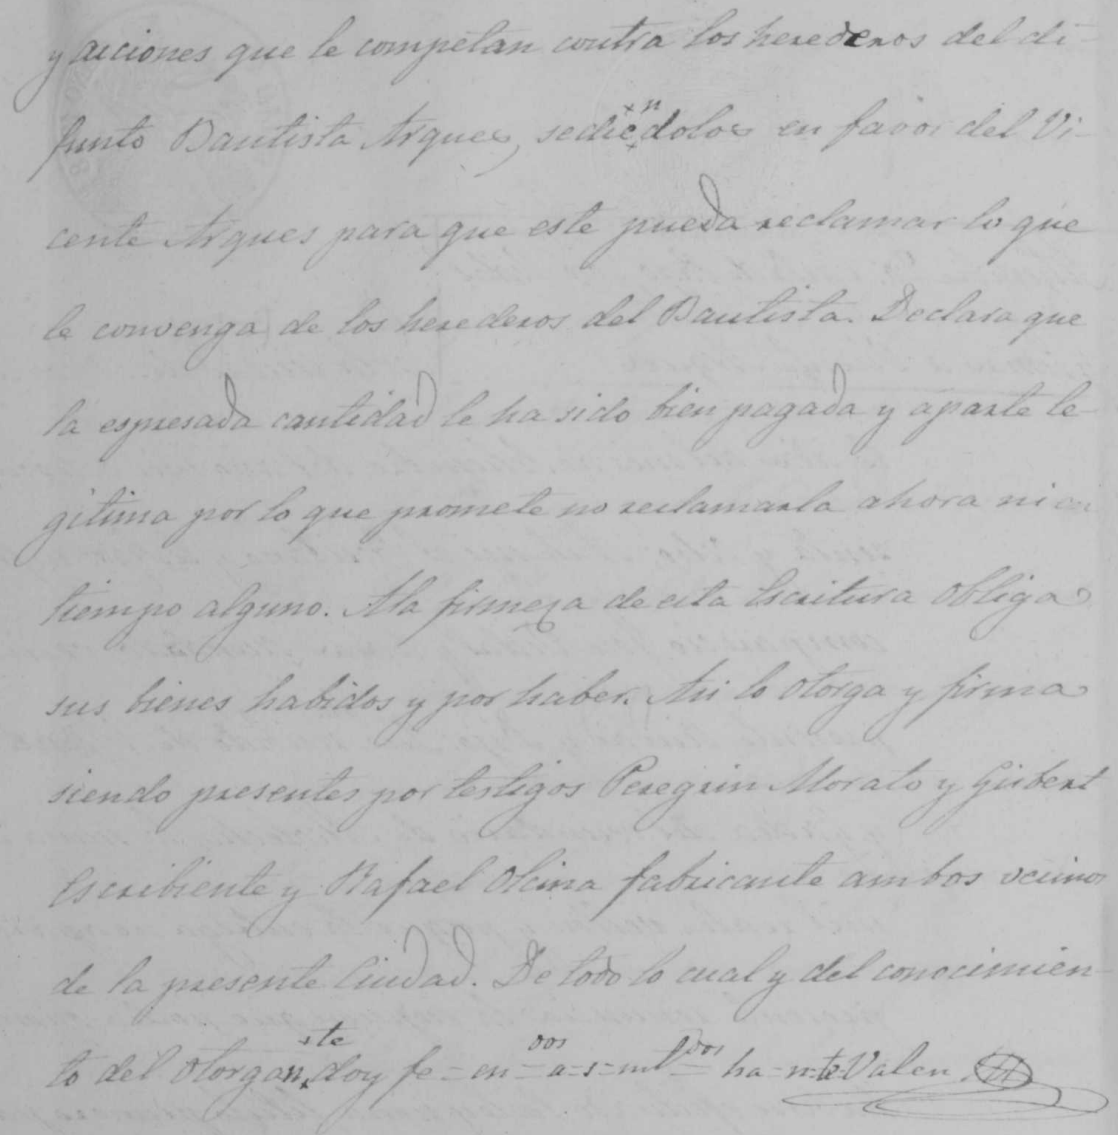 y acciones que le competan contra los herederos del di-
funto Bautista Arques, sediendolos en favor del Vi-
cente Arques para que este pueda reclamar lo que
le convenga de los herederos del Bautista. Declara que
la espresada cantidad le ha sido bien pagada y aparte le-
gitima por lo que promete no reclamarla ahora ni en
tiempo alguno. A la firmeza de esta Escritura obliga
sus bienes habidos y por haber. Asi lo otorga y firma
siendo presentes por testigos Peregrin Morato y Gisbert
Escribiente y Rafael Olcina fabricante ambos vecinos
de la presente Ciudad. De todo lo cual y del conocimien-
to del otorgante, doy fe = en = a = s = ml = ha = n = te Valen